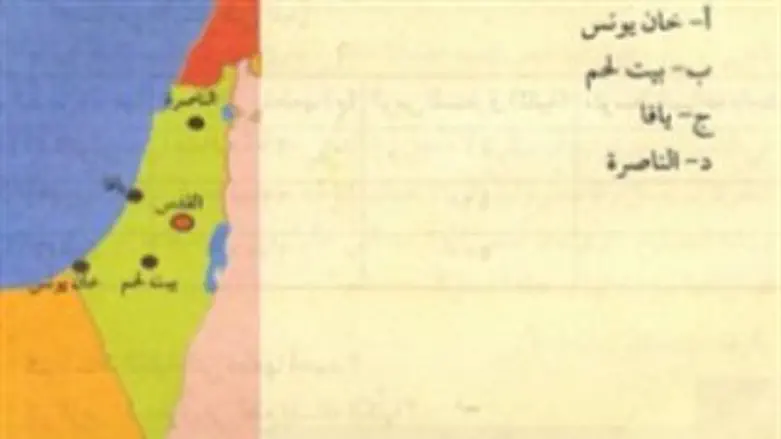 أ- خان يونس
ب- بيت لحم
ج- يافا
د- الناصرة
الناصرة
يافا
القدس
بيت لحم
خان يونس